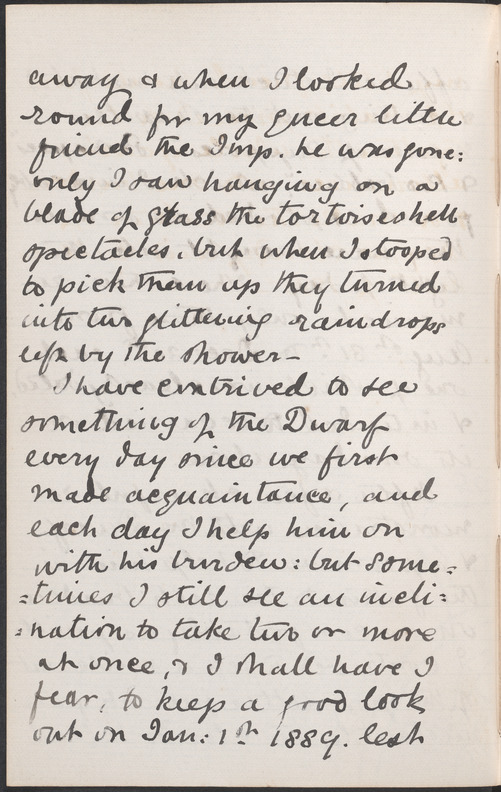 away & when I looked
round for my queer little
friend the Imp. he was gone:
only I saw hanging on a
blade of grass the tortoiseshell
spectacles, but when I stooped
to pick them up they turned
into two glittering raindrops
left by the shower -
I have contrived to see
something of the Dwarf
every day since we first
made acquaintance, and
each day I help him on
with his burden: but some=
=times I still see an incli=
=nation to take two or more
at once, & I shall have I
fear, to keep a good look
out on Jan: 1st 1889. lest